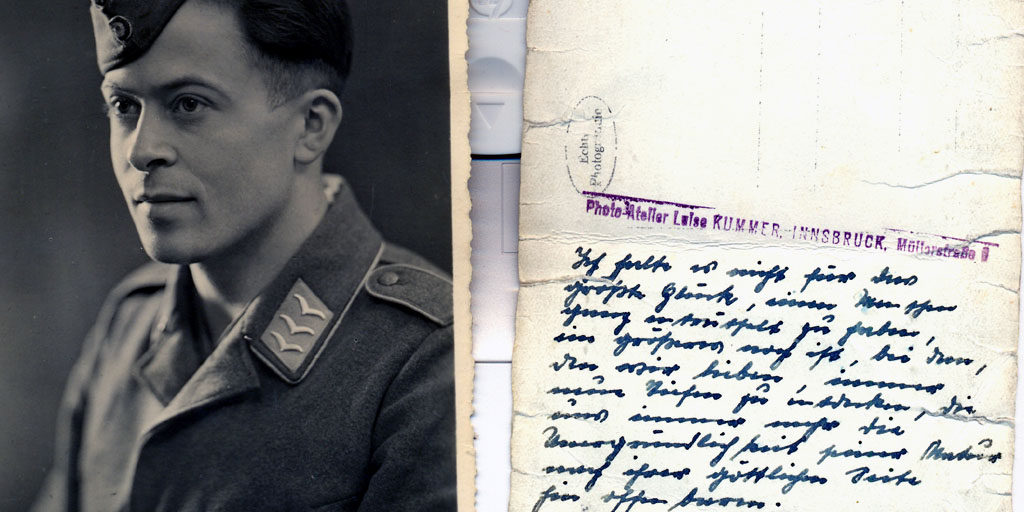 Echte
Photographie
Photo-Atelier Luise KUMMER, INNSBRUCK, Müllerstraße
Ich halte es nicht für das
größte Glück, einen Menschen
ganz enträtselt zu haben,
ein größeres noch ist, bei dem,
den wir lieben, immer
neue Tiefen zu entdecken, die
uns immer mehr die
Unergründlichkeit seiner Natur
nach ihrer göttlichen Seite
hin offenbaren.